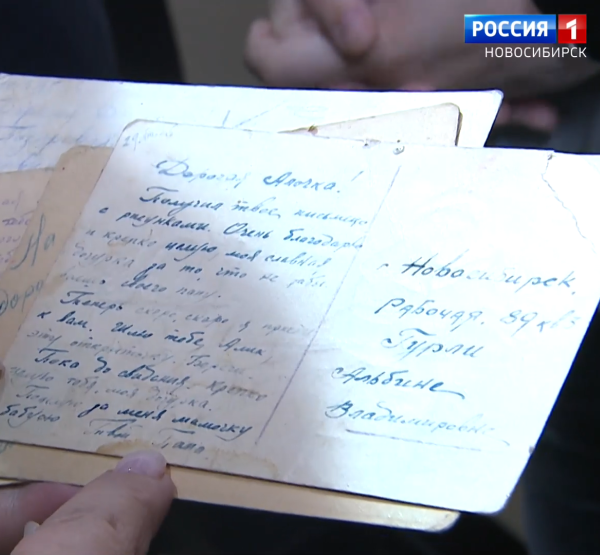 РОССИЯ 1
НОВОСИБИРСК
Дорогая Алочка!
Получил твое письмецо
с рисунками. Очень благодарю
и крепко целую моя славная
дочурка за то, что не забы
своего папу.
Теперь скоро, скоро я приеду
к вам. Шлю тебе, Алик
эту открыточку. Береги.
Пока до свидания. Крепко
целую тебя, моя дочурка.
Поцелуй за меня мамочку
бабусю
Твой Папа
г. Новосибирск.
Рабочая, 89 кв
Гурли
Альбине
Владимировне
На